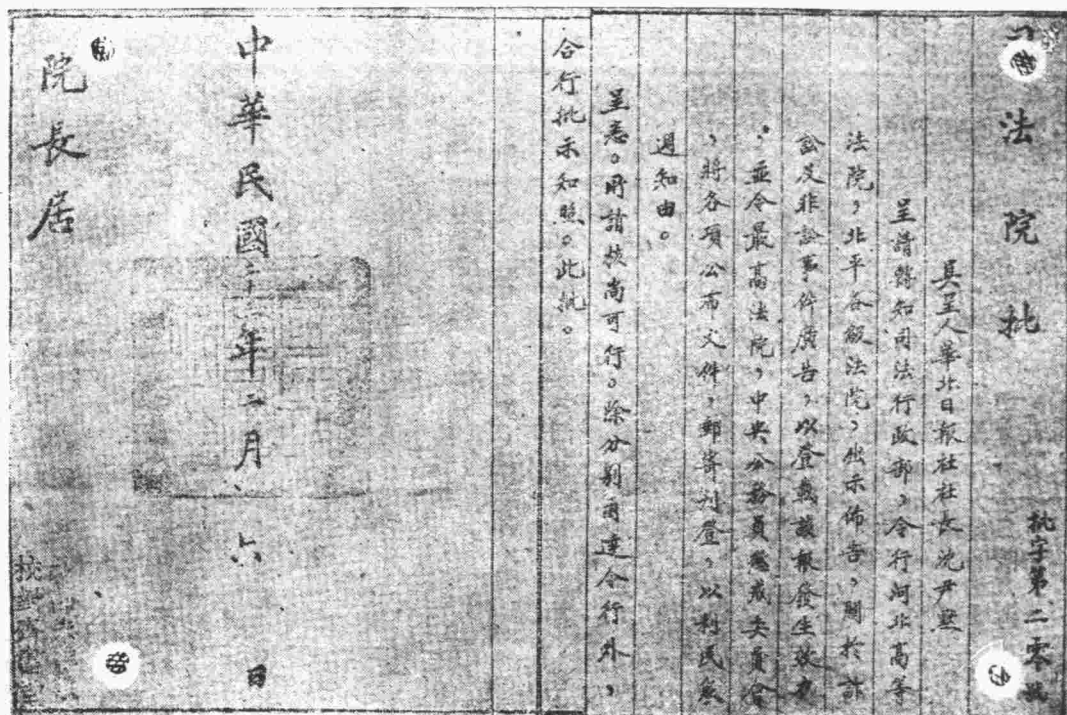 法院批
批字第二零號
具呈人華北日報社社長沈尹默
呈請轉知司法行政部，令行河北高等
法院，北平各級法院，出示佈告，關於訴
訟及非訟事件廣告，以登載該報發生效力
，並令最高法院，中央公務員懲戒委員會
，將各項公布文件，郵寄刊登，以利民衆
週知由。
呈悉。所請核尚可行。除分別函達令行外，
合行批示知照。此批。
中華民國二十一年二月六日
院長居
校對